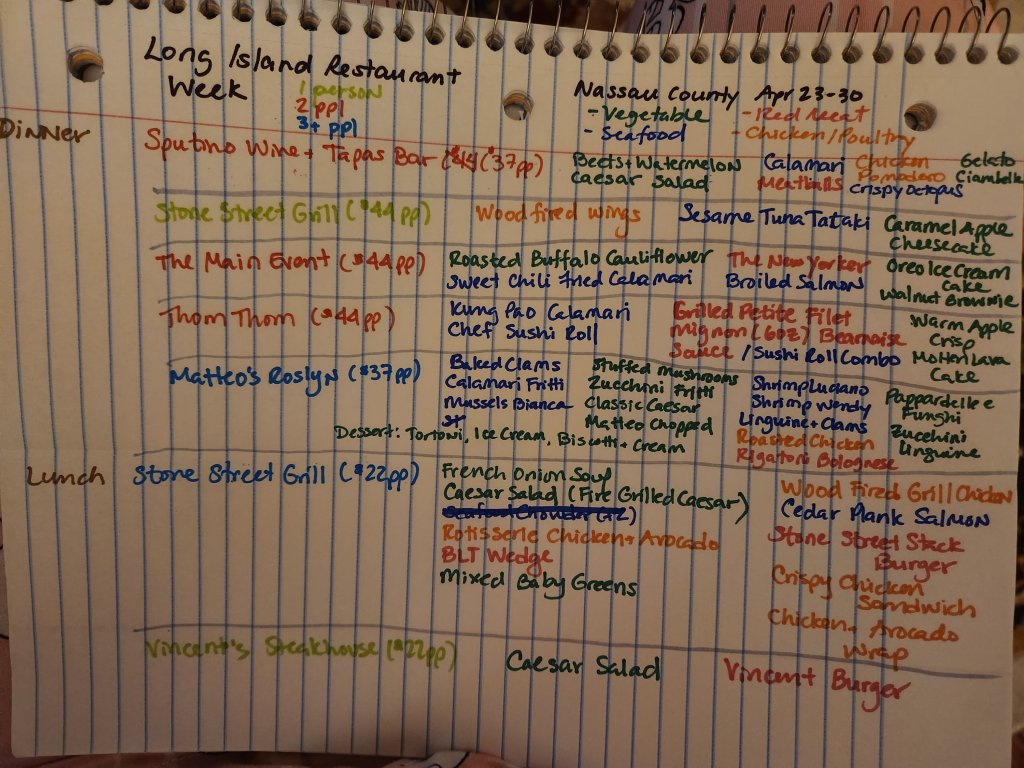 Long Island Restaurant
Week
1 person
2 ppl
3+ ppl
Nassau County Apr 23-30
- Vegetable - Red Meat
- Seafood - Chicken/Poultry
Dinner
Sputino Wine + Tapas Bar ($37pp)
Beets + Watermelon Calamari Chicken Gelato
Caesar Salad Meatballs Pomodoro Ciambelle
Crispy Octopus
Stone Street Grill ($44pp) Wood fired wings Sesame Tuna Tataki Caramel Apple
Cheesecake
The Main Event ($44pp) Roasted Buffalo Cauliflower The New Yorker Oreo Ice Cream
Cake
Sweet Chili Fried Calamari Broiled Salmon Walnut Brownie
Thom Thom ($44pp) Kung Pao Calamari Grilled Petite Filet Warm Apple
Chef Sushi Roll Mignon (6oz) Bearnaise Crisp
Sauce / Sushi Roll Combo Molten Lava
Cake
Matteo's Roslyn ($37pp) Baked Clams Stuffed mushrooms Shrimp Luciano Pappardelle
Calamari Fritti Zucchini Fritti Shrimp Wendy Funghi
Mussels Bianca Classic Caesar Linguine + Clams Zucchini
Matteo Chopped Roasted Chicken Linguine
Dessert: Tortoni, Ice Cream, Biscotti + Cream Rigatoni Bolognese
Lunch
Stone Street Grill ($22pp) French Onion Soup Wood Fired Grill Chicken
Caesar Salad (Fire Grilled Caesar) Cedar Plank Salmon
Seafood Chowder (+2) Stone Street Stack
Rotisserie Chicken + Avocado Burger
BLT Wedge Crispy Chicken
Mixed Baby Greens Sandwich
Chicken + Avocado
Wrap
Vincent's Steakhouse ($22pp) Caesar Salad Vincent Burger